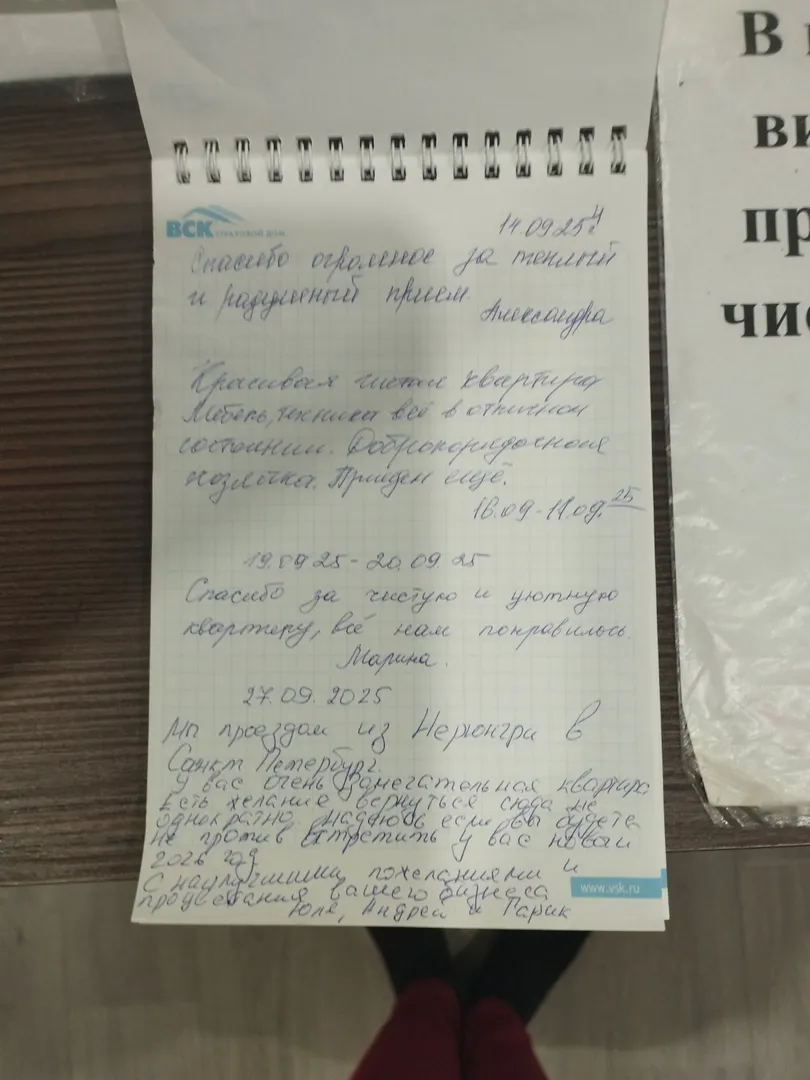 ВСК СТРАХОВОЙ ДОМ
14.09.25г
Спасибо огромное за теплый
и радушный прием.
Александра
Красивая чистая квартира
Мебель, техника всё в отличном
состоянии. Добропорядочная
хозяйка. Приедем ещё.
16.09-17.09.25
19.09.25-20.09.25
Спасибо за чистую и уютную
квартиру, всё нам понравилось.
Марина.
27.09.2025
Мы проездом из Нерюнгри в
Санкт Петербург.
У вас очень замечательная квартира
Есть желание вернуться сюда не
однократно. Надеюсь если вы будете
не против встретить у вас новый
2026 год
С наилучшими пожеланиями и
процветания вашего бизнеса
Юля, Андрей и Гарик
www.vsk.ru
В
ви
пр
чис